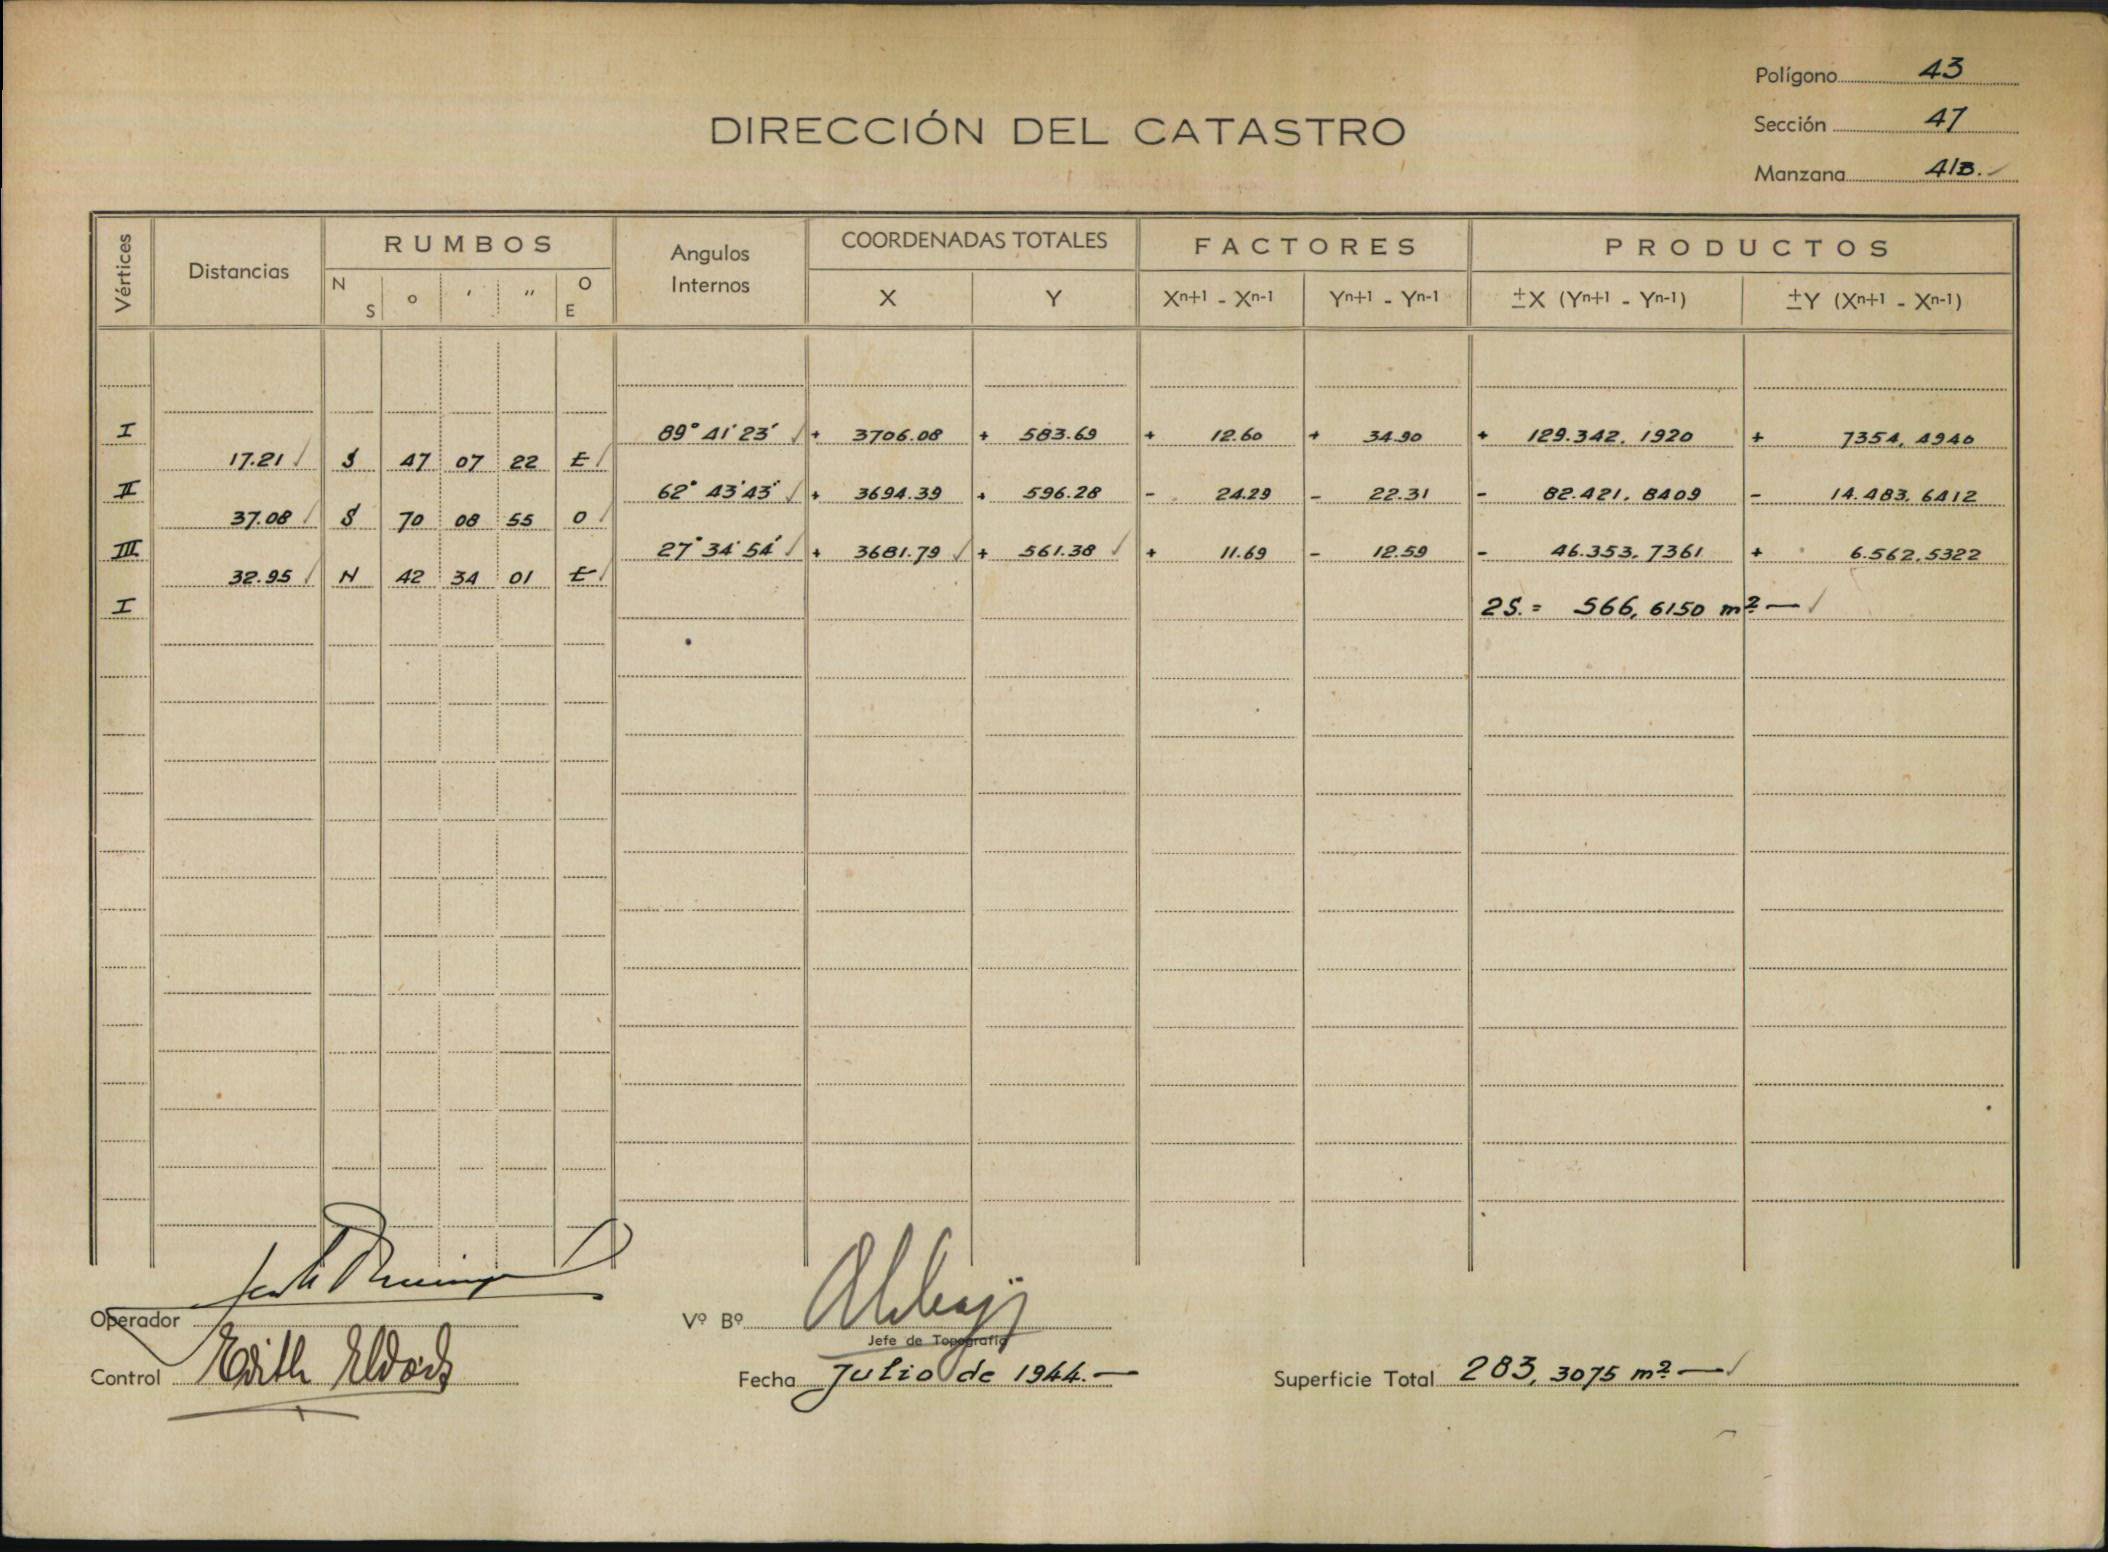 Polígono 43
DIRECCIÓN DEL CATASTRO
Sección 47
Manzana 41B.
Vértices
Distancias
RUMBOS
N S ° ' " O E
Angulos
Internos
COORDENADAS TOTALES
X Y
FACTORES
Xn+1 - Xn-1 Yn+1 - Yn-1
PRODUCTOS
±X (Yn+1 - Yn-1) ±Y (Xn+1 - Xn-1)
I 89° 41' 23' + 3706.08 + 583.69 + 12.60 + 34.90 + 129.342, 1920 + 7354, 4940
17.21 S 47 07 22 E
II 62° 43' 43' + 3694.39 + 596.28 - 24.29 - 22.31 - 82.421, 8409 - 14.483, 6412
37.08 S 70 08 55 O
III 27° 34' 54' + 3681.79 + 561.38 + 11.69 - 12.59 - 46.353, 7361 + 6.562, 5322
32.95 N 42 34 01 E
I 2S. = 566, 6150 m²
Operador
Vº Bº
Jefe de Topografía
Control Edith
Fecha Julio de 1944.-
Superficie Total 283, 3075 m²